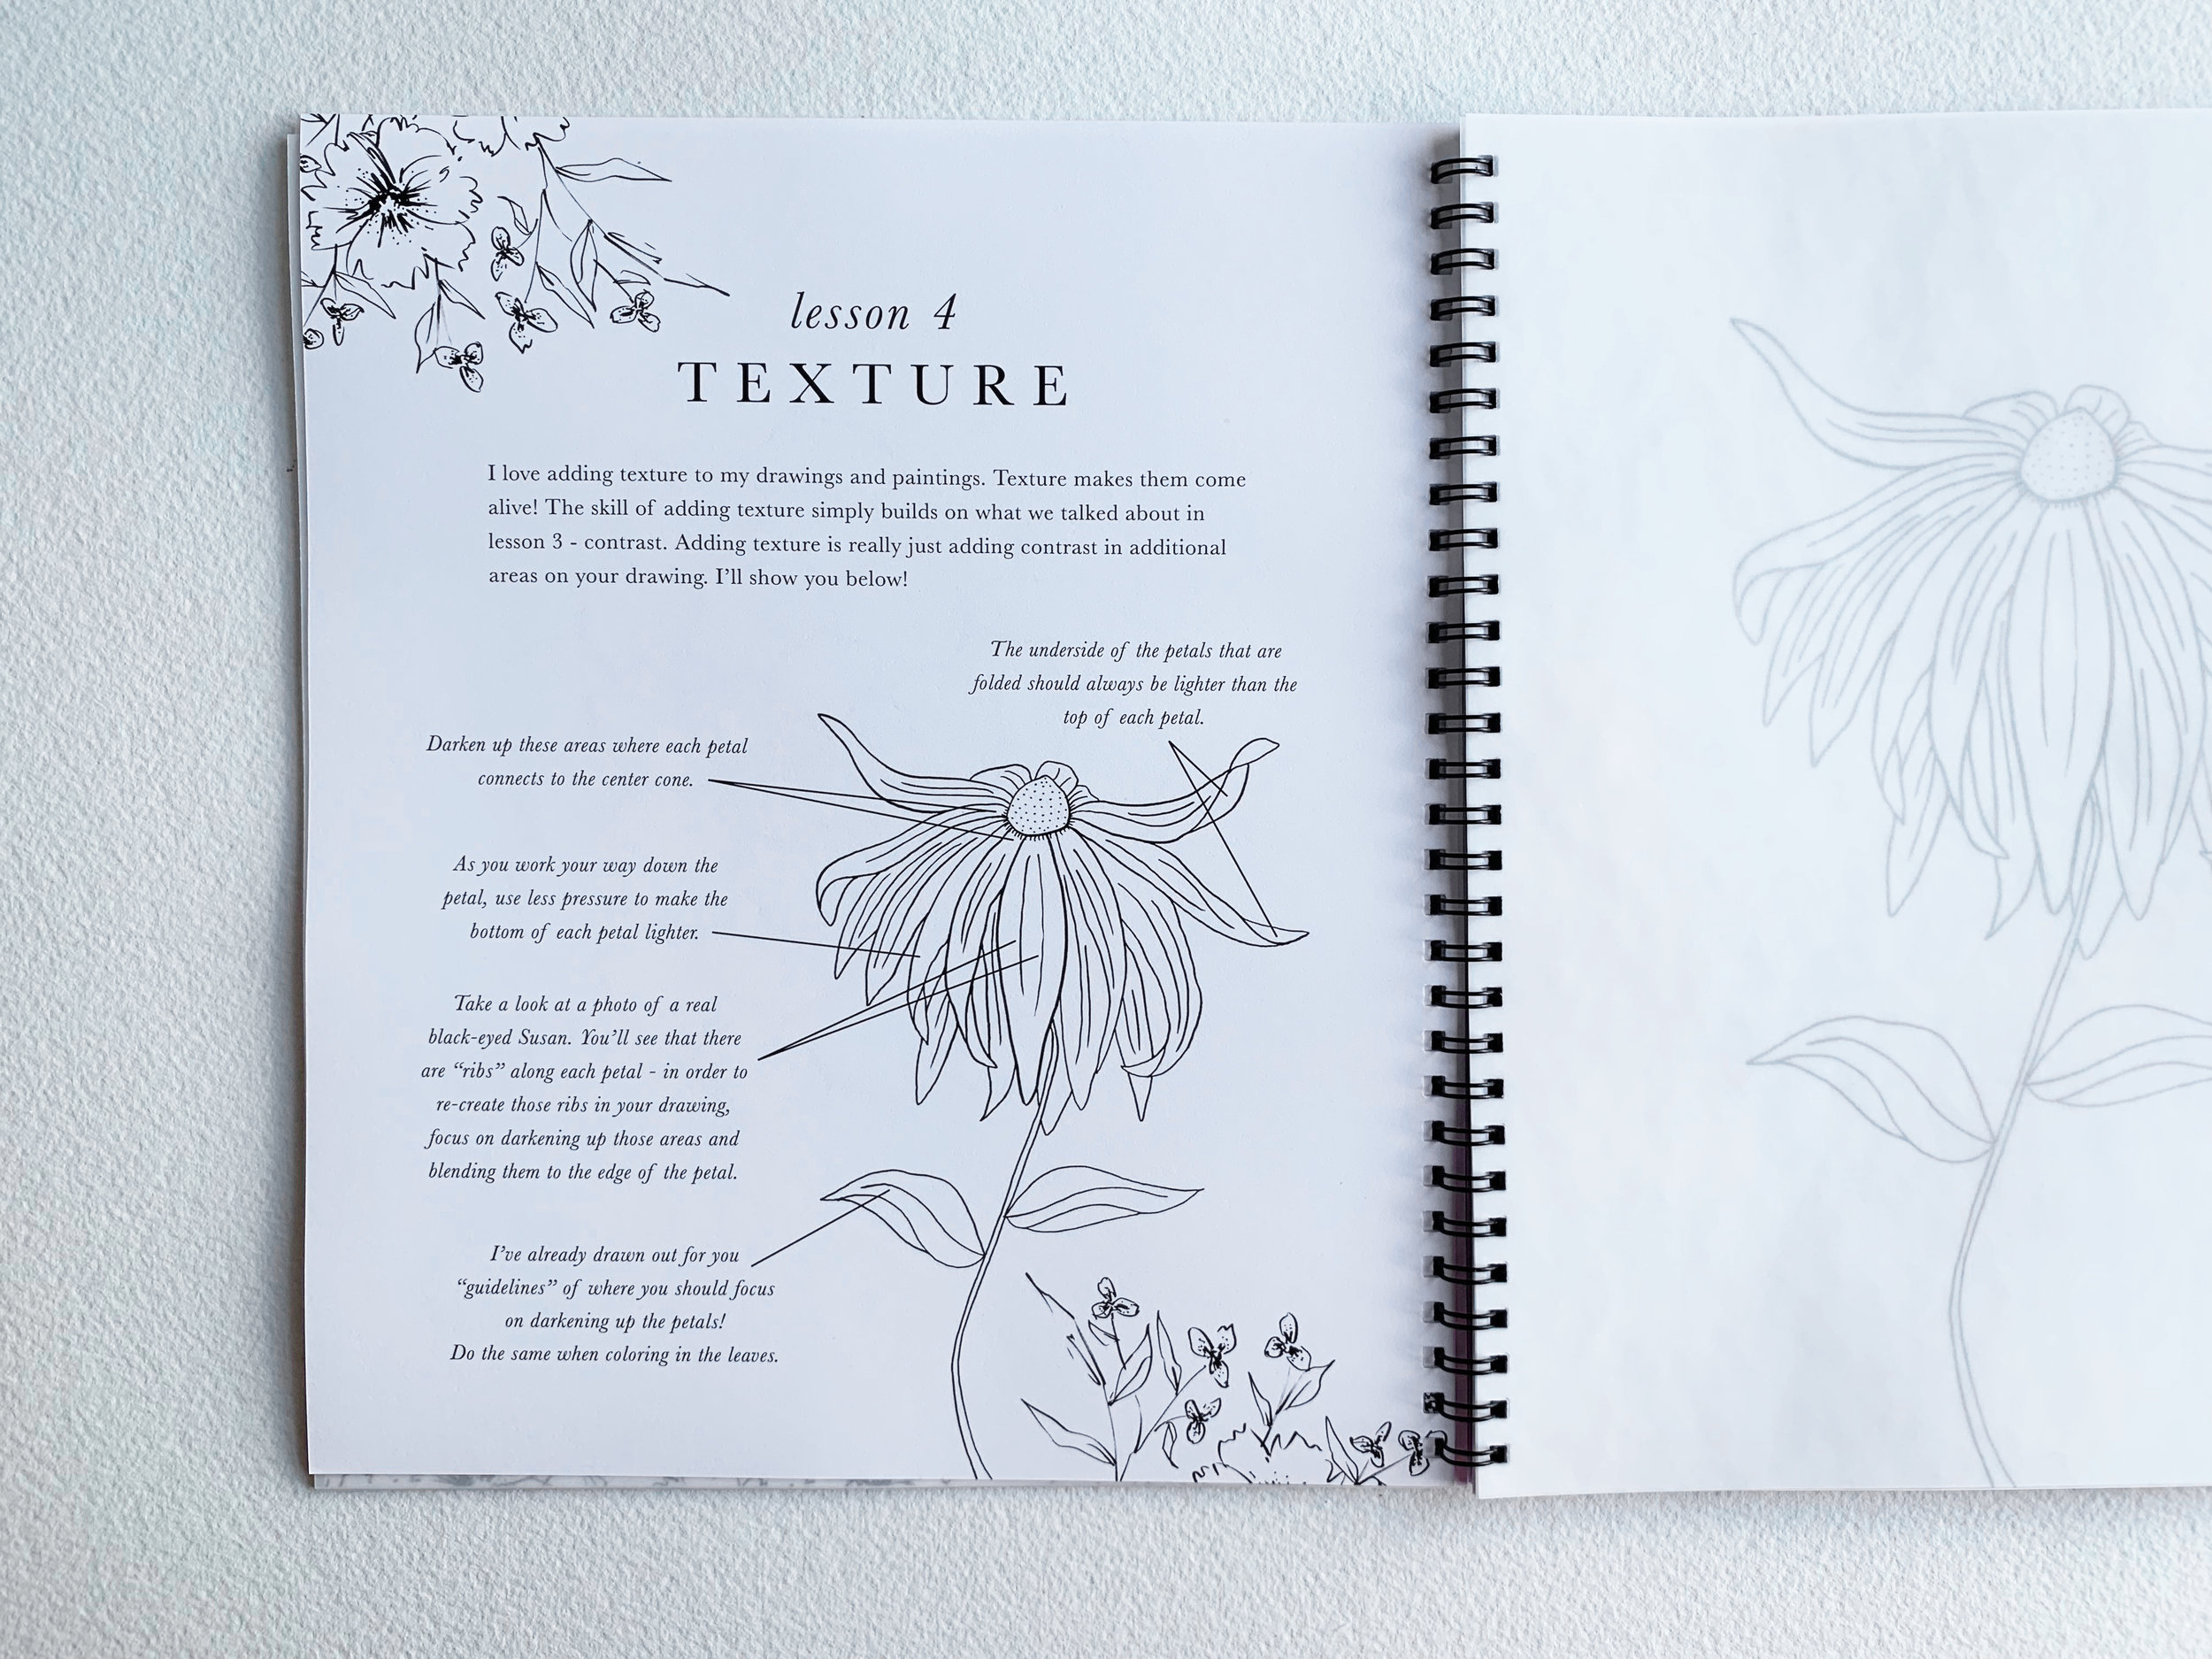 lesson 4
TEXTURE
I love adding texture to my drawings and paintings. Texture makes them come
alive! The skill of adding texture simply builds on what we talked about in
lesson 3 - contrast. Adding texture is really just adding contrast in additional
areas on your drawing. I’ll show you below!
The underside of the petals that are
folded should always be lighter than the
top of each petal.
Darken up these areas where each petal
connects to the center cone.
As you work your way down the
petal, use less pressure to make the
bottom of each petal lighter.
Take a look at a photo of a real
black-eyed Susan. You’ll see that there
are “ribs” along each petal - in order to
re-create those ribs in your drawing,
focus on darkening up those areas and
blending them to the edge of the petal.
I’ve already drawn out for you
“guidelines” of where you should focus
on darkening up the petals!
Do the same when coloring in the leaves.